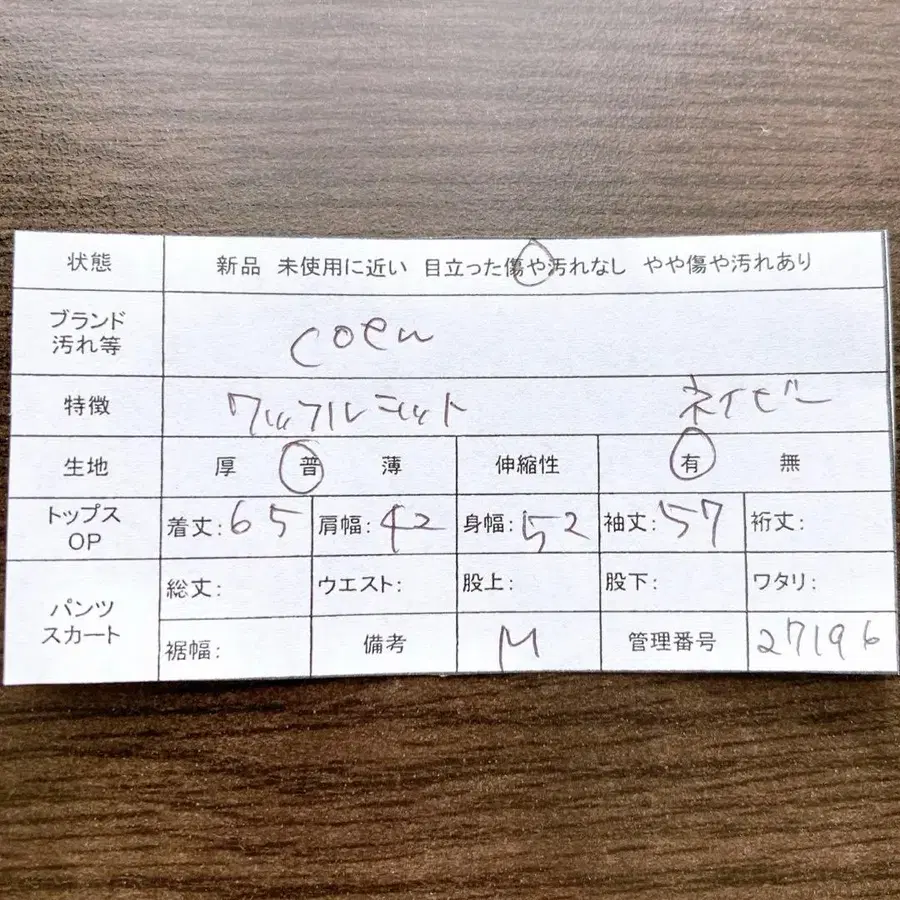 状態 新品 未使用に近い 目立った傷や汚れなし やや傷や汚れあり
ブランド
汚れ等 coen
特徴 ワッフルニット ネイビー
生地 厚 普 薄 伸縮性 有 無
トップス
OP 着丈:65 肩幅:42 身幅:52 袖丈:57 裄丈:
パンツ
スカート 総丈: ウエスト: 股上: 股下: ワタリ:
裾幅: 備考 M 管理番号 27196